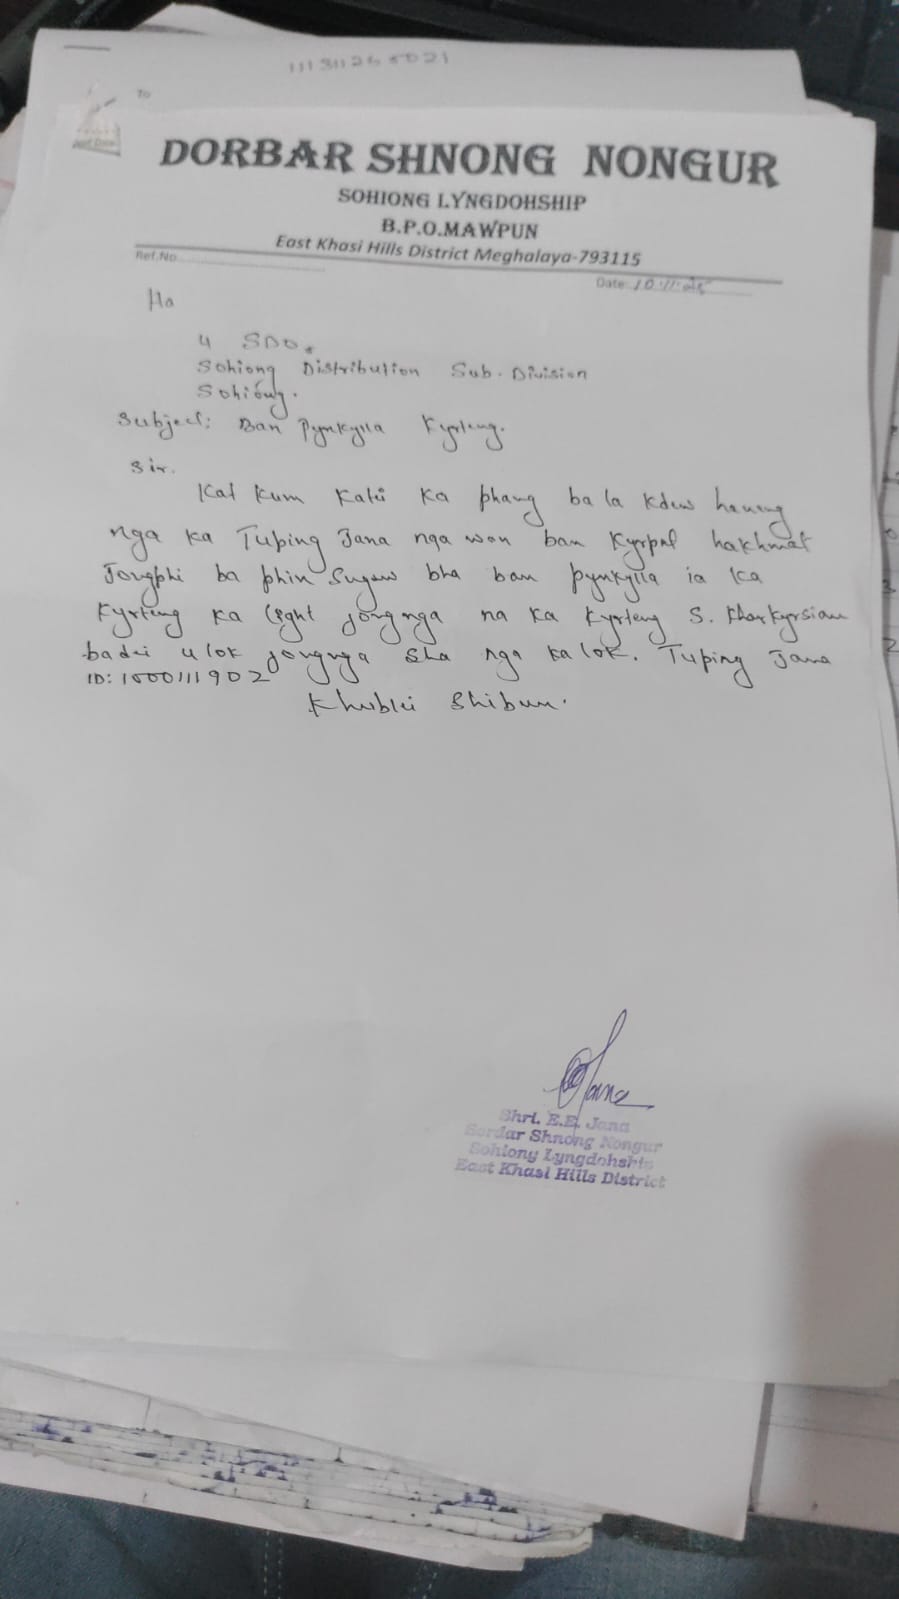 11131126 5021
To
DORBAR SHNONG NONGUR
SOHIONG LYNGDOHSHIP
B.P.O.MAWPUN
East Khasi Hills District Meghalaya-793115
Ref.No
Date: 10.11.25
Ha
U SDO.
Sohiong Distribution Sub-Division
Sohiong.
Subject: Ban Pynkylla Kyrteng.
Sir.
Kat kum katei ka phang ba la kdew haneng
nga ka Tuping Jana nga wan ban kyrpad hakhmat
jongphi ba phin sngew bha ban pynkylla ia ka
Kyrteng ka light jongnga na ka kyrteng S. Kharkyrsian
badei u lok jongnga sha nga ka lok. Tuping Jana
ID: 1000111902
Khublei Shibun.
Jana
Shri. E.E. Jana
Sordar Shnong Nongur
Sohiong Lyngdohship
East Khasi Hills District